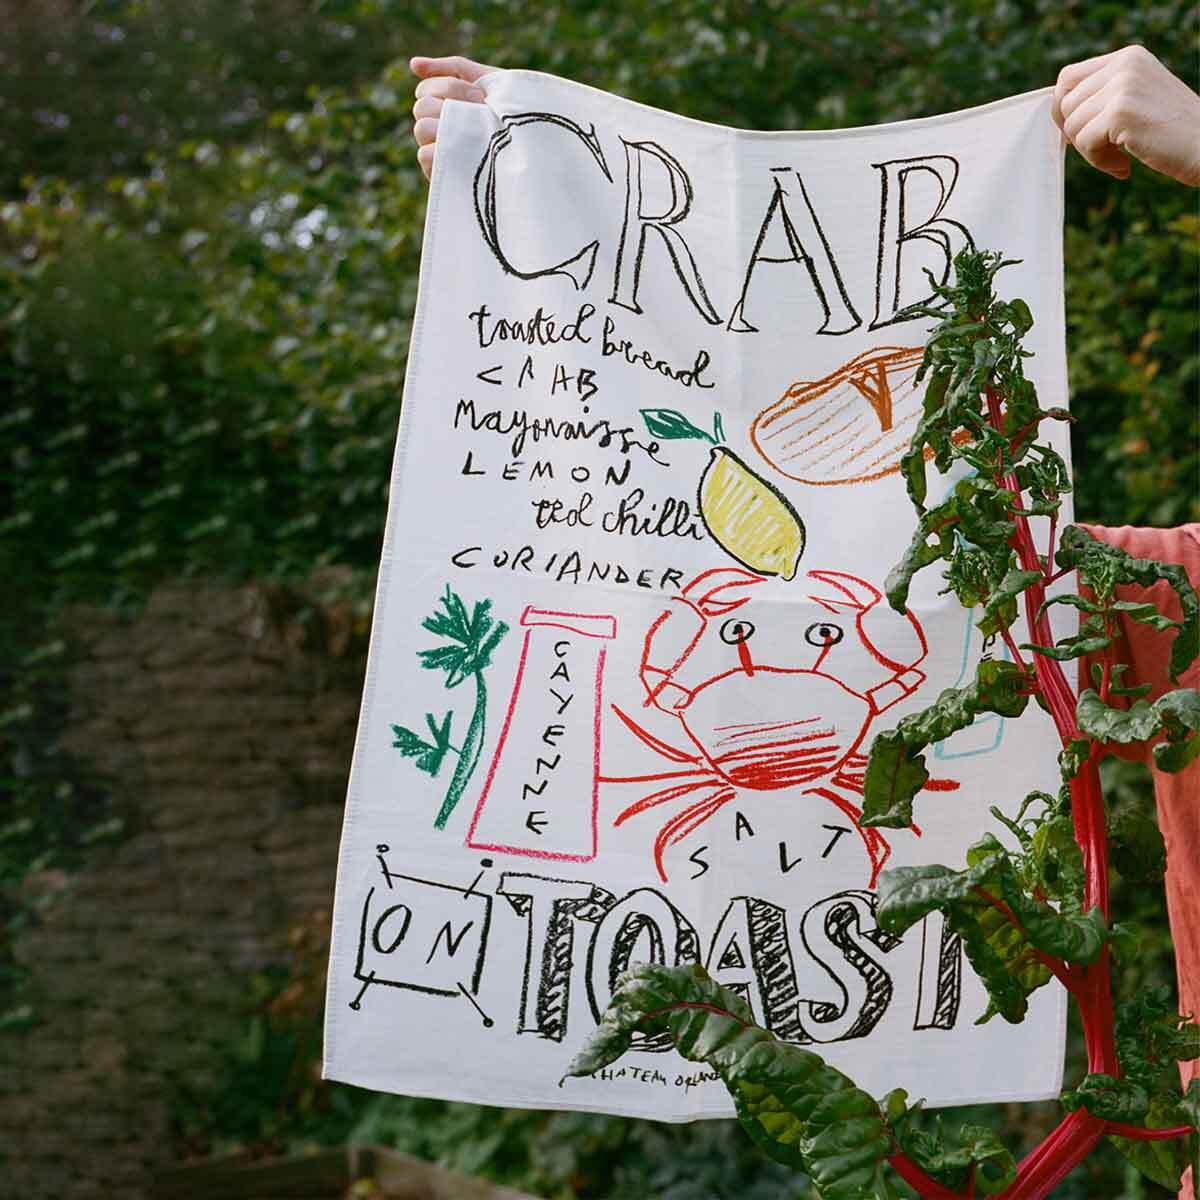 CRAB
toasted bread
CRAB
Mayonnaisse
LEMON
red chilli
CORIANDER
CAYENNE
SALT
ON TOAST
CHATEAU